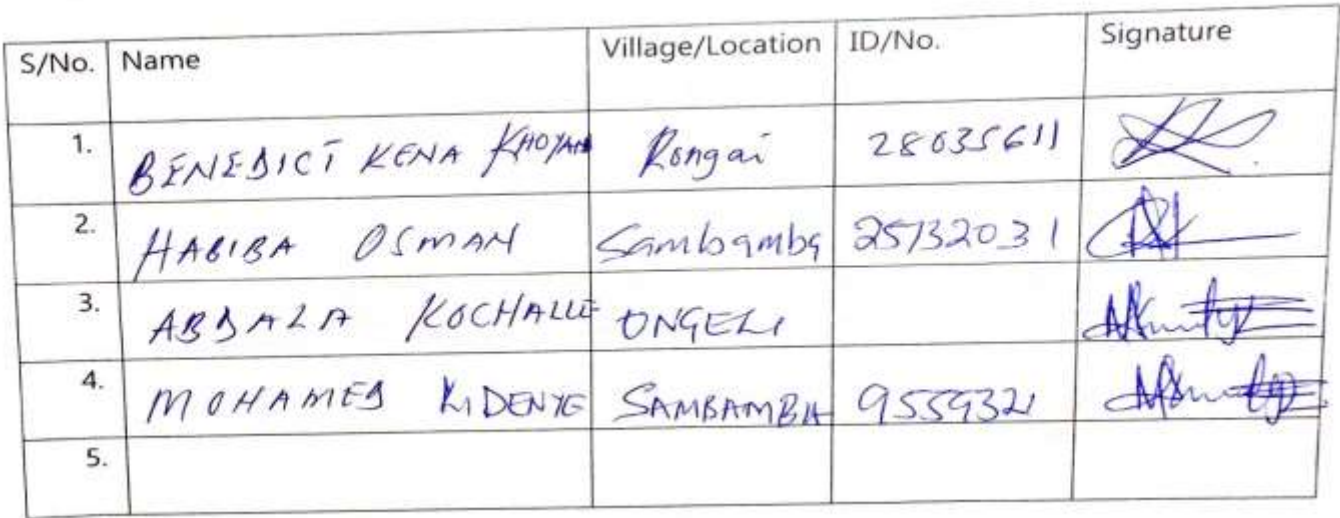 S/No. Name Village/Location ID/No. Signature
1. BENEDICT KENA KHOYAH Rongai 28035611
2. HABIBA OSMAN Sambamba 25132031
3. ABDALA KOCHALLE ONGELI
4. MOHAMED KIDENYE SAMBAMBA 9559321
5.